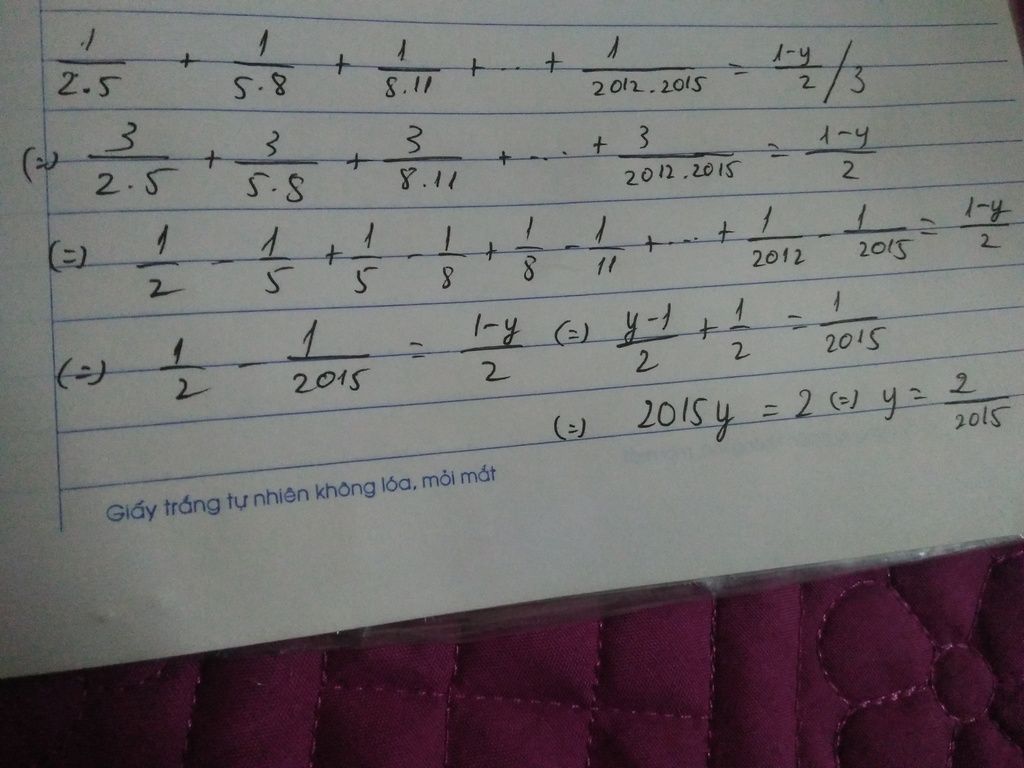 1/2.5 + 1/5.8 + 1/8.11 + ... + 1/2012.2015 = 1-y/2 / 3
(=) 3/2.5 + 3/5.8 + 3/8.11 + ... + 3/2012.2015 = 1-y/2
(=) 1/2 - 1/5 + 1/5 - 1/8 + 1/8 - 1/11 + ... + 1/2012 - 1/2015 = 1-y/2
(=) 1/2 - 1/2015 = 1-y/2 (=) y-1/2 + 1/2 = 1/2015
(=) 2015y = 2 (=) y = 2/2015
Giấy trắng tự nhiên không lóa, mỏi mắt